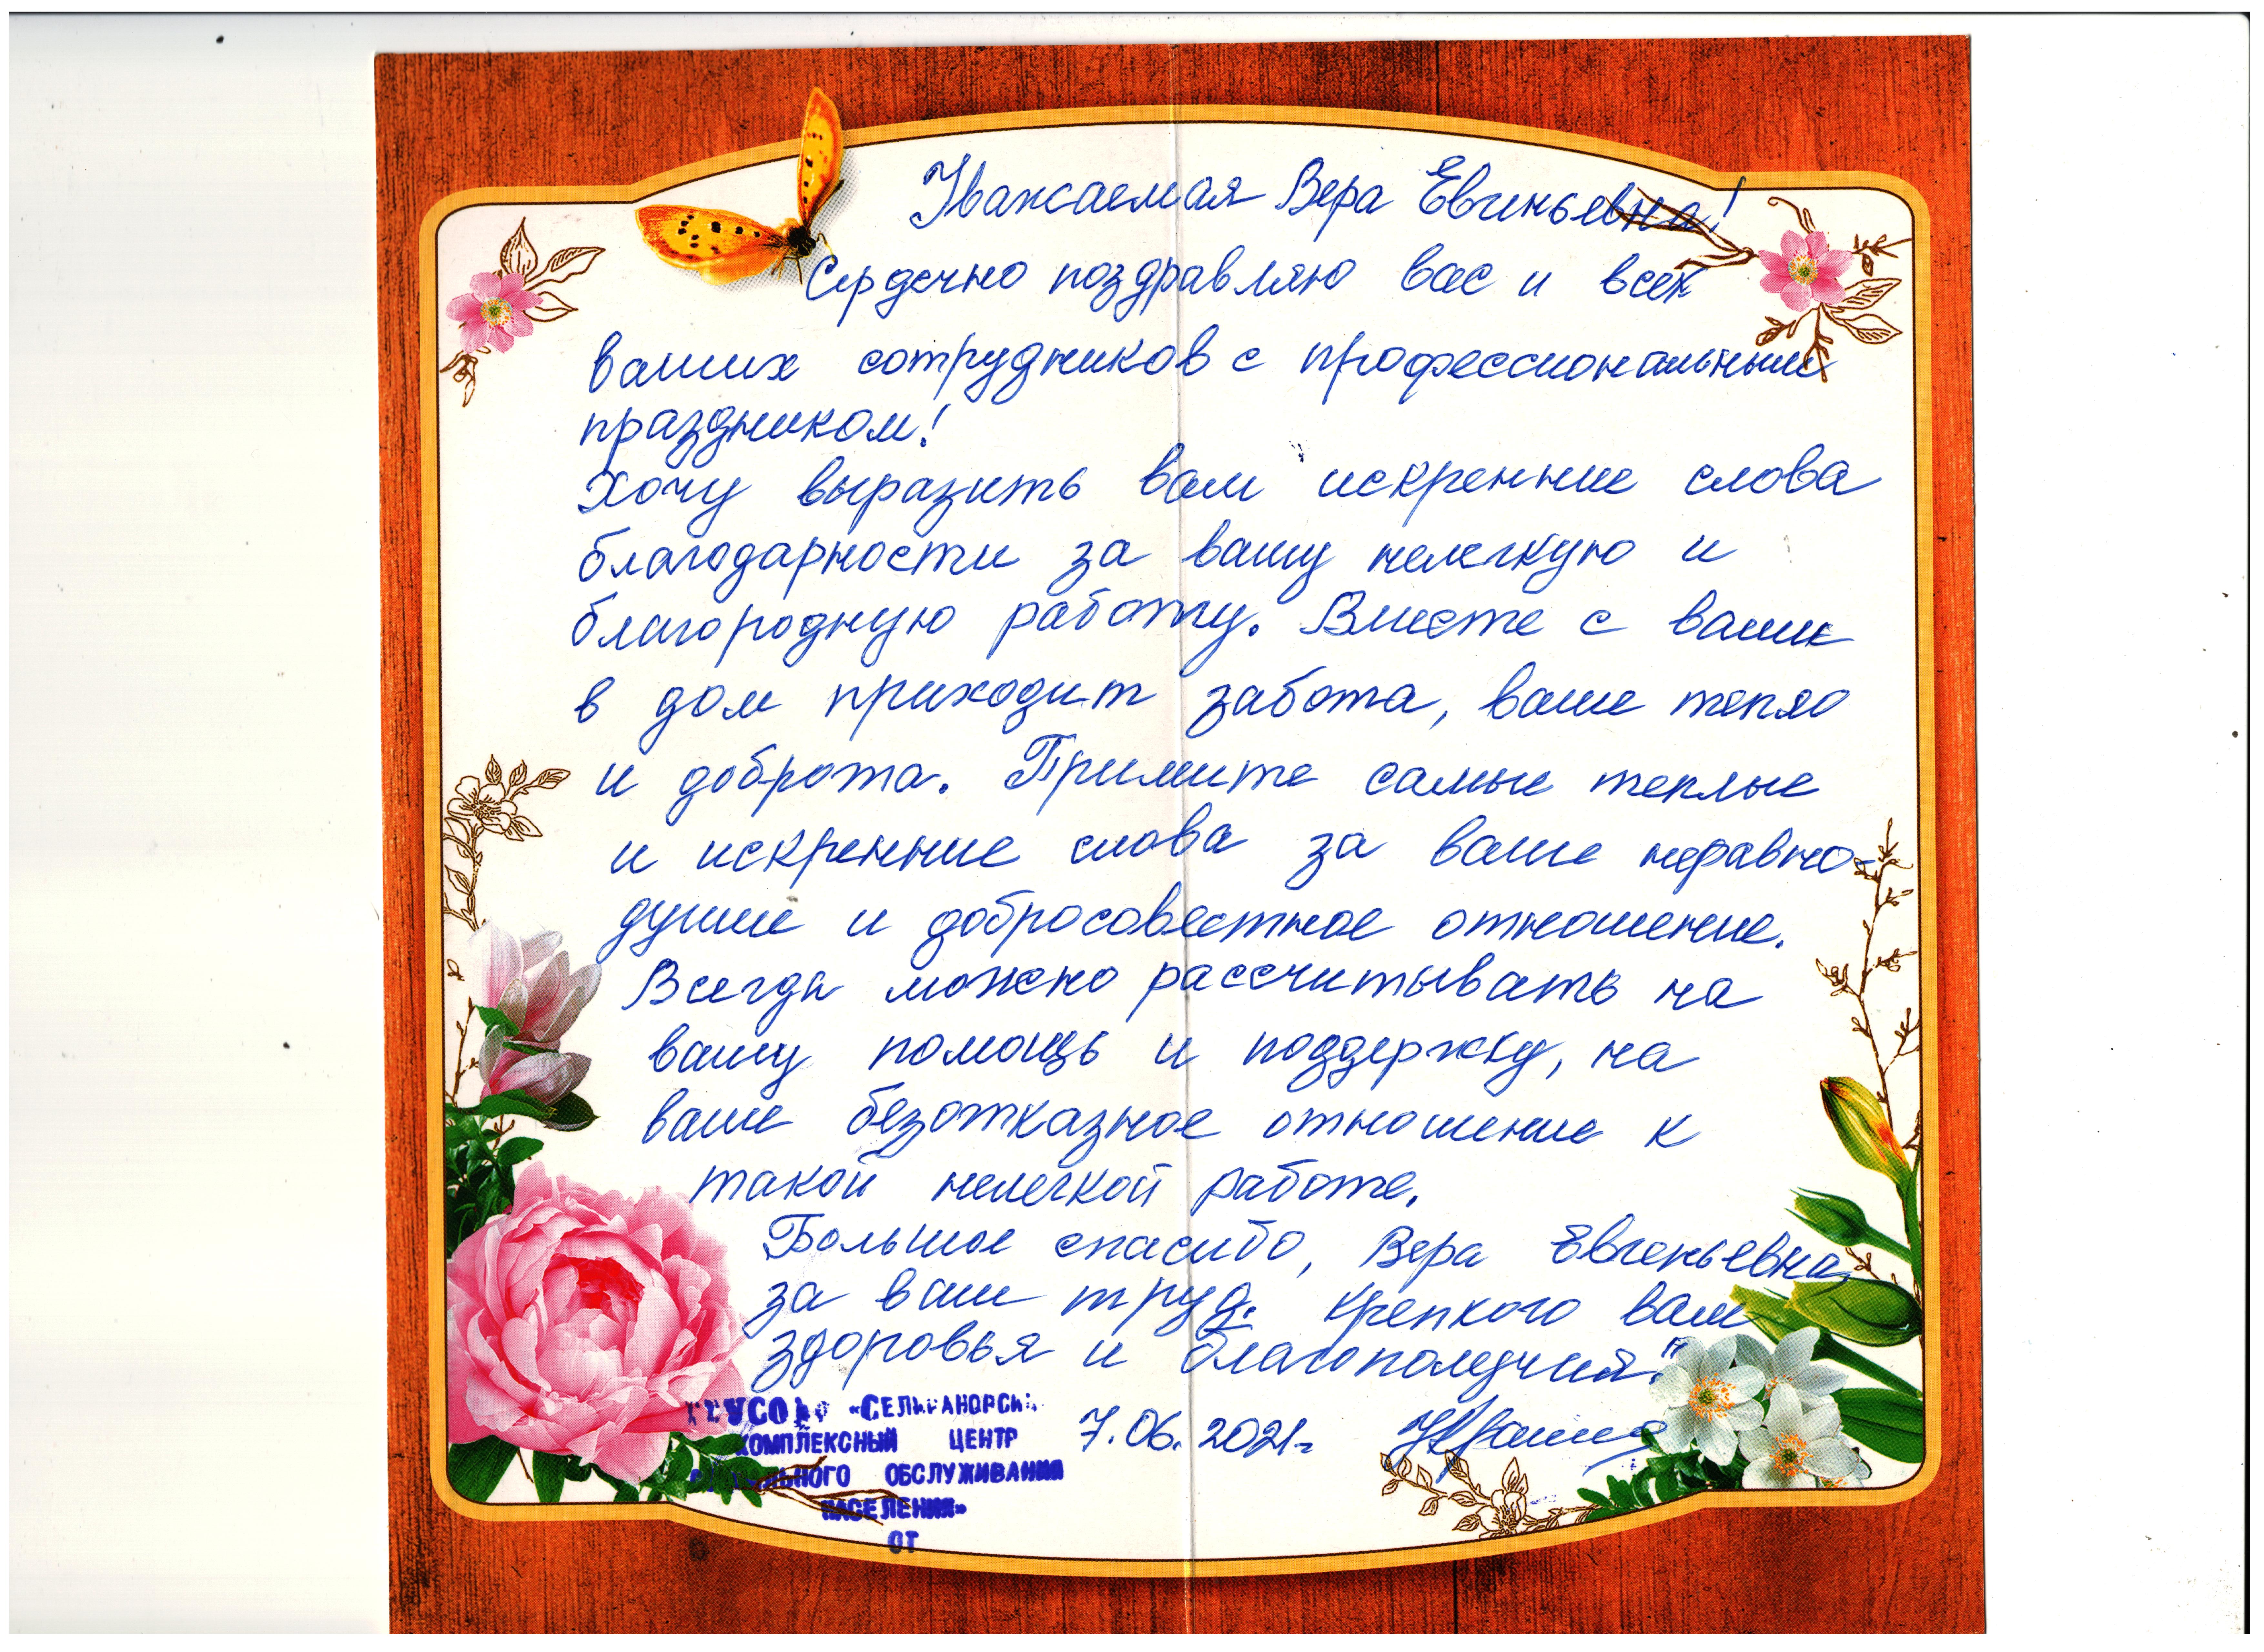 Уважаемая Вера Евгеньевна!
Сердечно поздравляю вас и всех
ваших сотрудников с профессиональным
праздником!
Хочу выразить вам искренние слова
благодарности за вашу нелегкую и
благородную работу. Вместе с вами
в дом приходит забота, ваше тепло
и доброта. Примите самые теплые
и искренние слова за ваше неравно-
душие и добросовестное отношение.
Всегда можно рассчитывать на
вашу помощь и поддержку, на
ваше безотказное отношение к
такой нелегкой работе.
Большое спасибо, Вера Евгеньевна,
за ваш труд. Крепкого вам
здоровья и благополучия!"
7.06.2021г
КОМПЛЕКСНЫЙ ЦЕНТР
ОБСЛУЖИВАНИЯ
НАСЕЛЕНИЯ»
ОТ